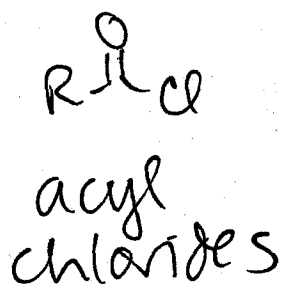 O
R Cl
acyl
chlorides